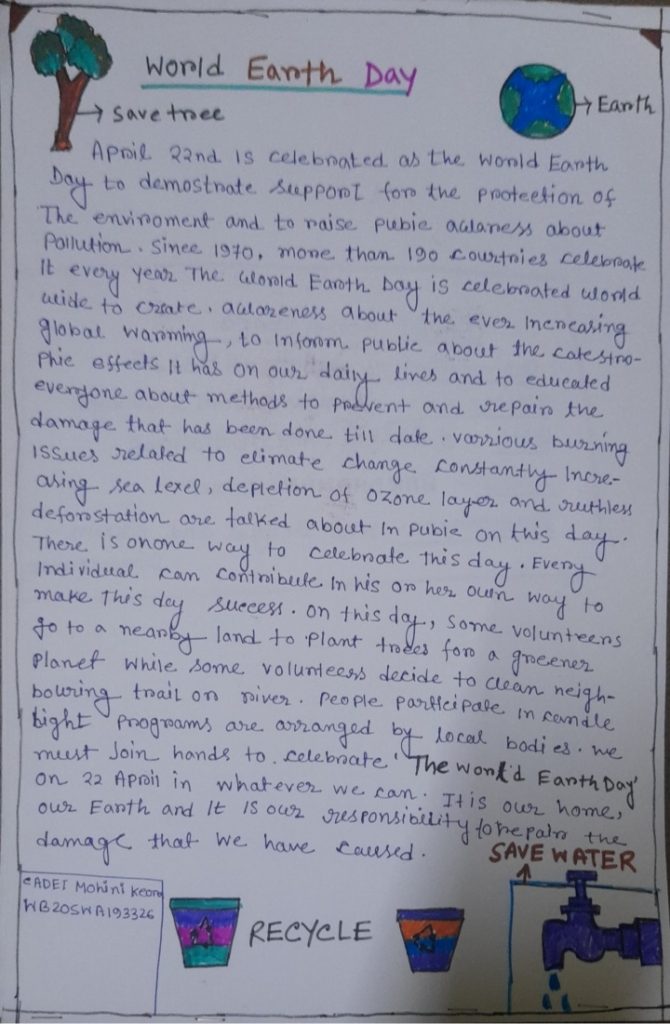 World Earth Day
Save tree
Earth
April 22nd is celebrated as the World Earth
Day to demostrate support for the protection of
The enviroment and to raise pubic awarness about
Pollution. Since 1970, more than 190 courtries celebrate
It every year The World Earth Day is celebrated world
wide to create. awareness about the ever Increasing
global warming, to Inform public about the catestro-
Phic effects It has on our daily lives and to educated
everyone about methods to prevent and repair the
damage that has been done till date. varrious burning
Issues related to climate change constantly Incre-
asing sea level, depletion of ozone layer and ruthless
deforostation are talked about In Pubic on this day.
There is onone way to celebrate this day. Every
Individual can contribute In his or her own way to
make This day success. on this day, some volunteers
go to a nearby land to Plant trees for a greener
Planet while some volunteers decide to clean neigh-
bouring trail or river. People participate in candle
Light Programs are arranged by local bodies. we
must Join hands to celebrate 'The World Earth Day'
on 22 April in whatever we can. It is our home,
our Earth and It Is our responsibility to repair the
damage that we have caused.
SAVE WATER
CADET Mohini Keora
WB20SWA193326
RECYCLE